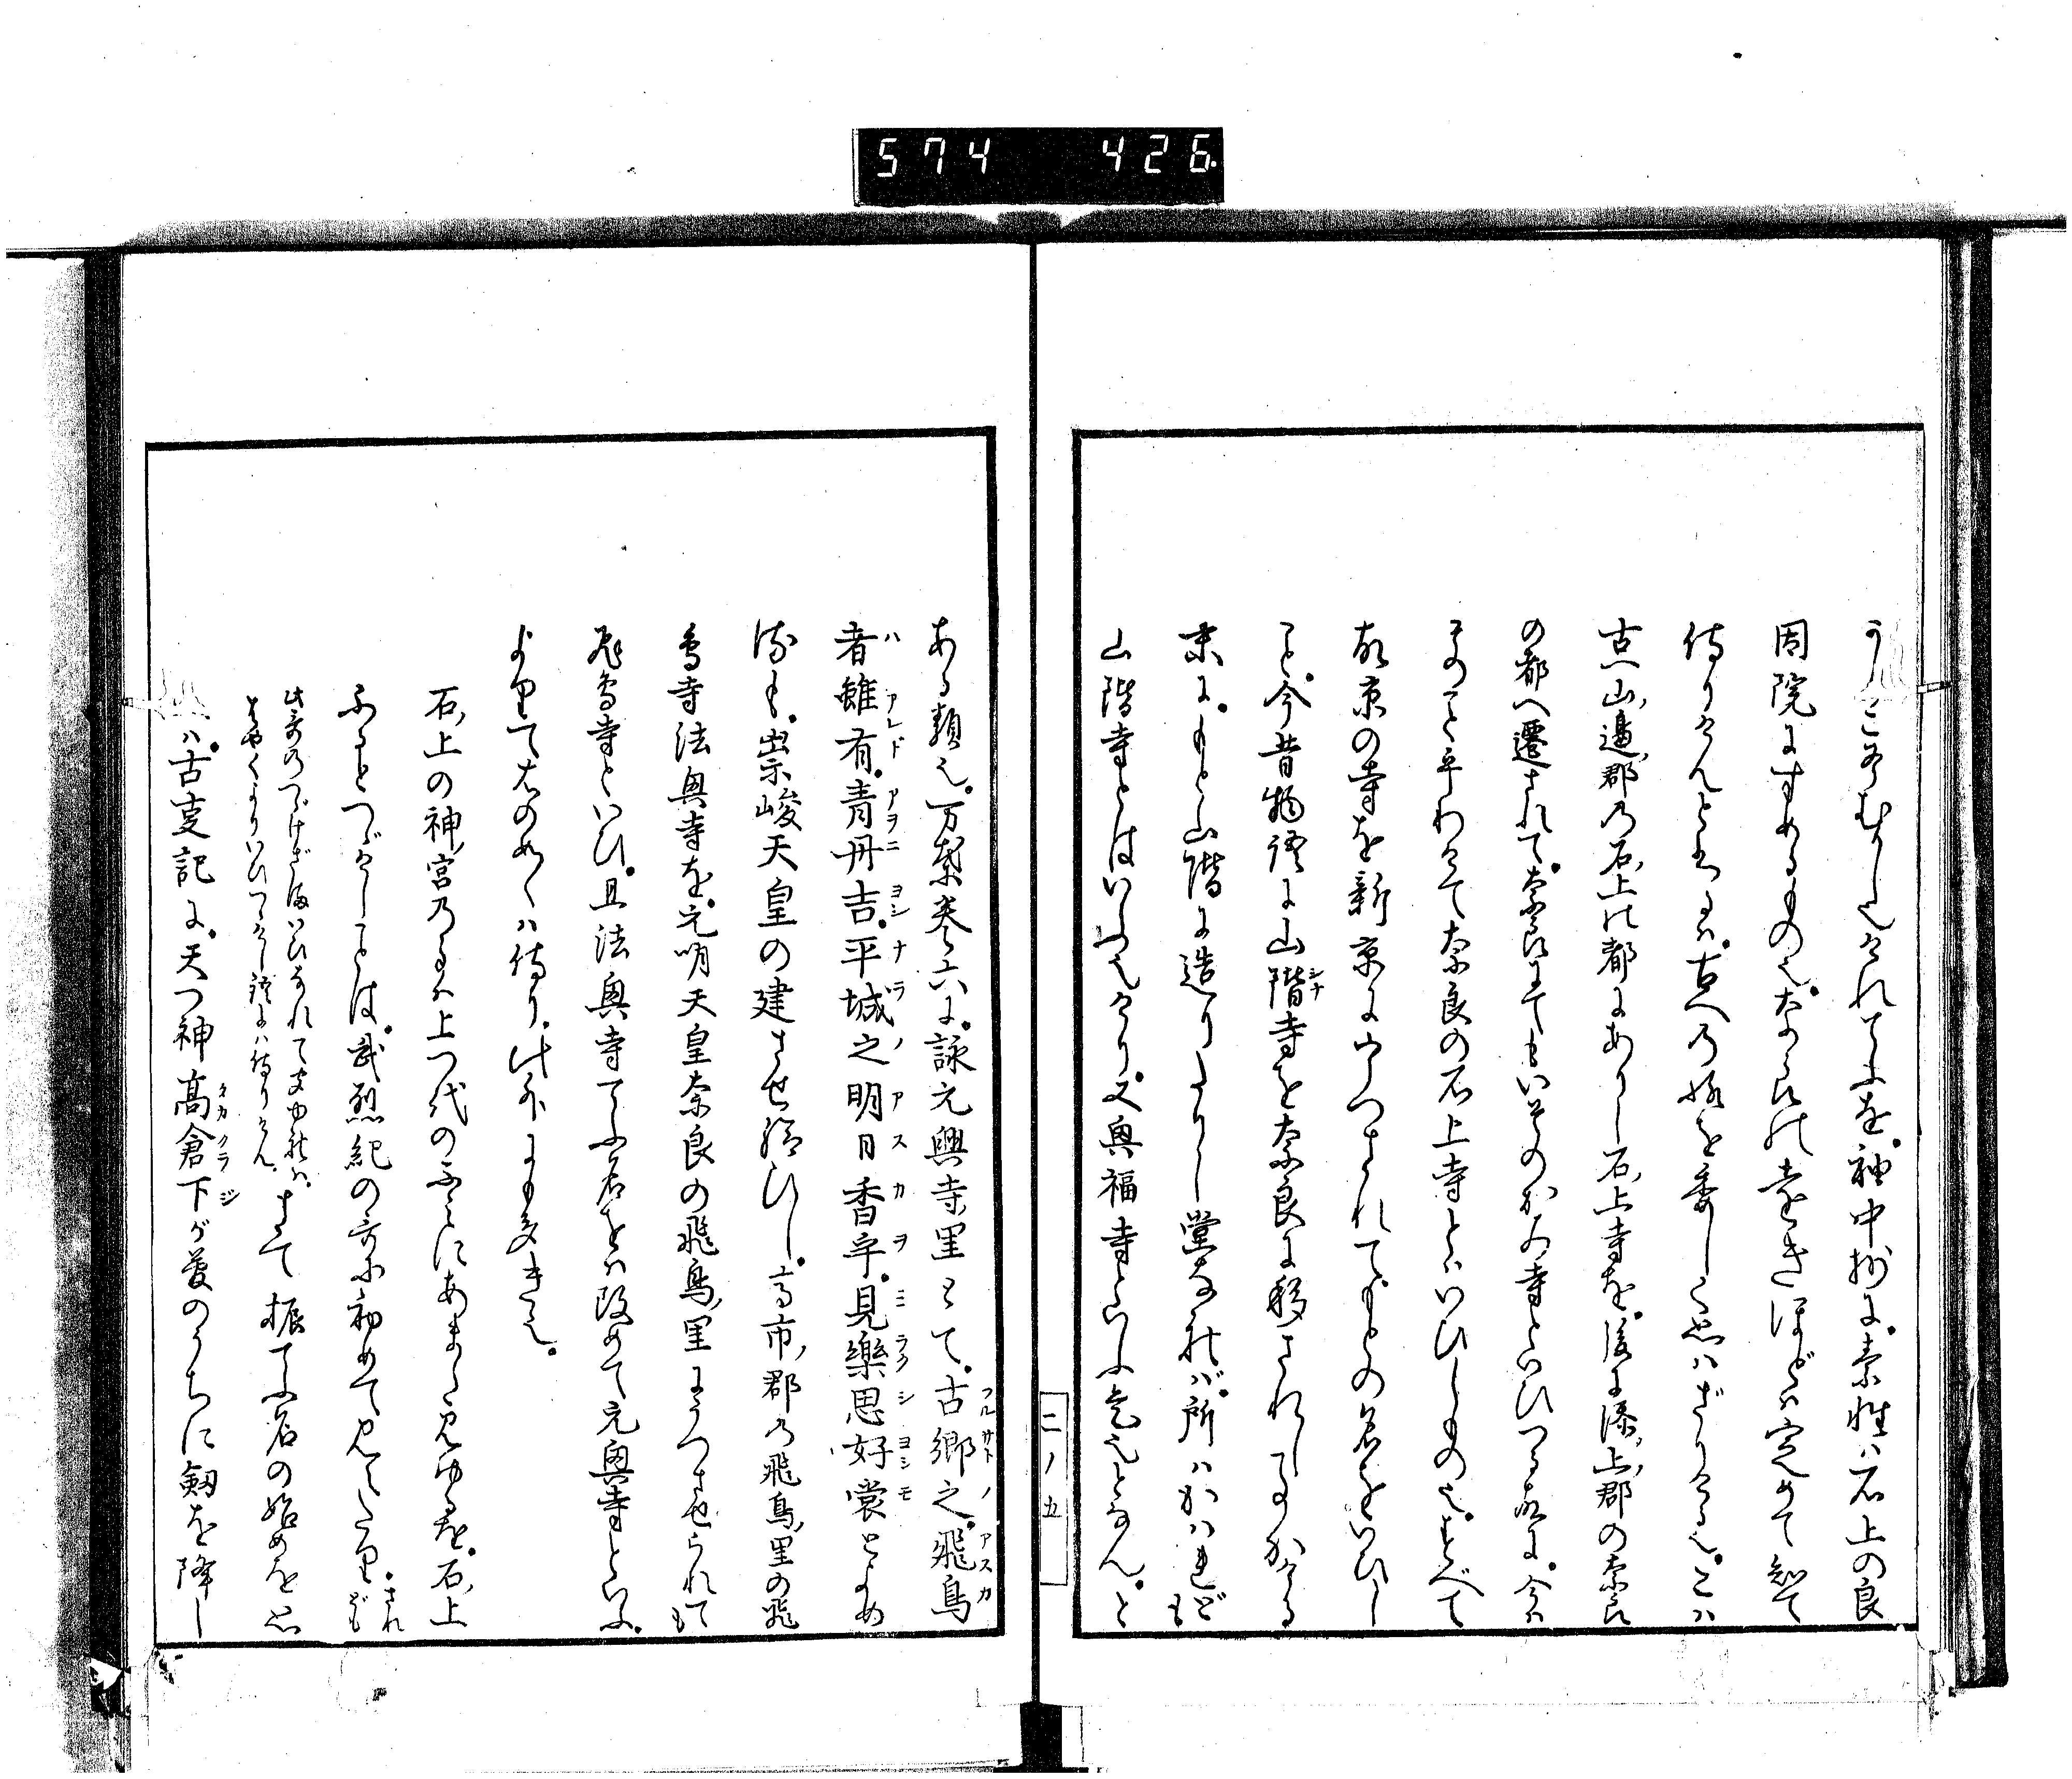 574 426
こそむかしなりけれてふを。袖中抄に。素性ハ石上の良
因院にすめるもの也。ならの京をきほどハ定めて知て
侍りけんとあるハ。古への始を委しく思ハざりける也。こハ
古へ山邊郡の石上の都にありし石上寺を。後に添上郡の奈良
の都へ遷されて。奈良にてもいそのかみ寺といひつる故に。今ハ
そのこと平わけて奈良の石上寺とハいひしもの也。すべて
故京の寺を新京にうつされて。もとの名をいひし
こと。今昔物語に山階寺を奈良に移されしなりかゝる
末に。もと山階に造りたりし堂なれバ。所ハかハれども
山階寺とはいふ也けり。又興福寺といふ是也となん。と
ニノ五
ある類也。万葉巻六に。詠元興寺里とて。古郷之飛鳥
者雖有。青丹吉。平城之明日香乎。見樂思好裳とよめ
るも。崇峻天皇の建させ給ひし。高市郡の飛鳥里の飛
鳥寺法興寺を。元明天皇奈良の飛鳥里にうつさせられても
飛鳥寺といひ。且法興寺てふ名をハ改めて元興寺といふ。
よりて右のめくハ侍り。此外にも多き也。
石上の神宮のことハ上つ代のふミにあまた見ゆるを。石上
ふるとつゞけしことは。武烈紀の哥に初めて見えたり。されども
此哥のつゞけざまいひなれて聞ゆれハ。
はやくよりいひつゞけし語にハ侍りけん。さて振てふ名の始めを思
ハ。古事記に。天つ神高倉下が夢のうちに劔を降し